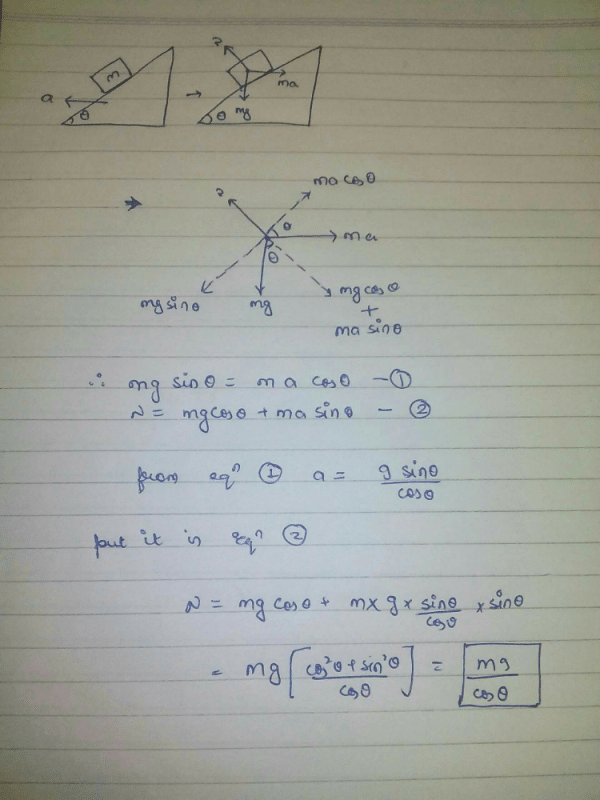 m
a
θ
N
ma
mg
θ
ma cosθ
N
θ
ma
θ
mg sinθ
mg
mg cosθ
+
ma sinθ
∴ mg sinθ = ma cosθ - ①
N = mg cosθ + ma sinθ - ②
from eqⁿ ① a = g sinθ / cosθ
put it in Eqⁿ ②
N = mg cosθ + m x g x sinθ / cosθ x sinθ
= mg [cos²θ + sin²θ / cosθ] = mg / cosθ